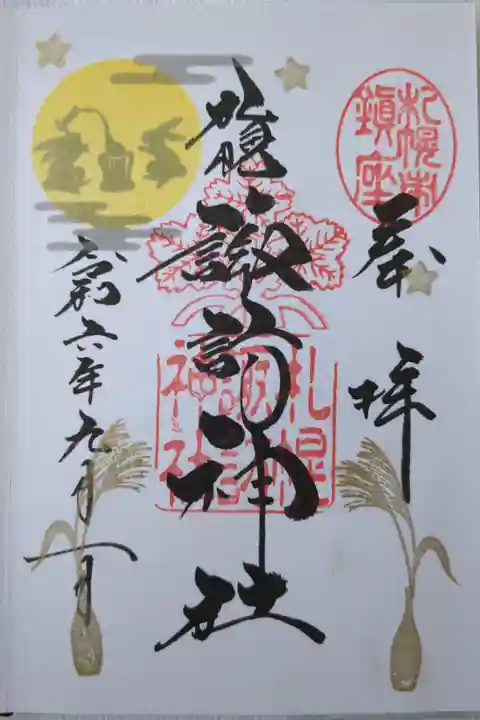 奉拝
札幌市
鎭座
札幌諏訪神社
札幌
諏訪
神社
令和六年九月一日